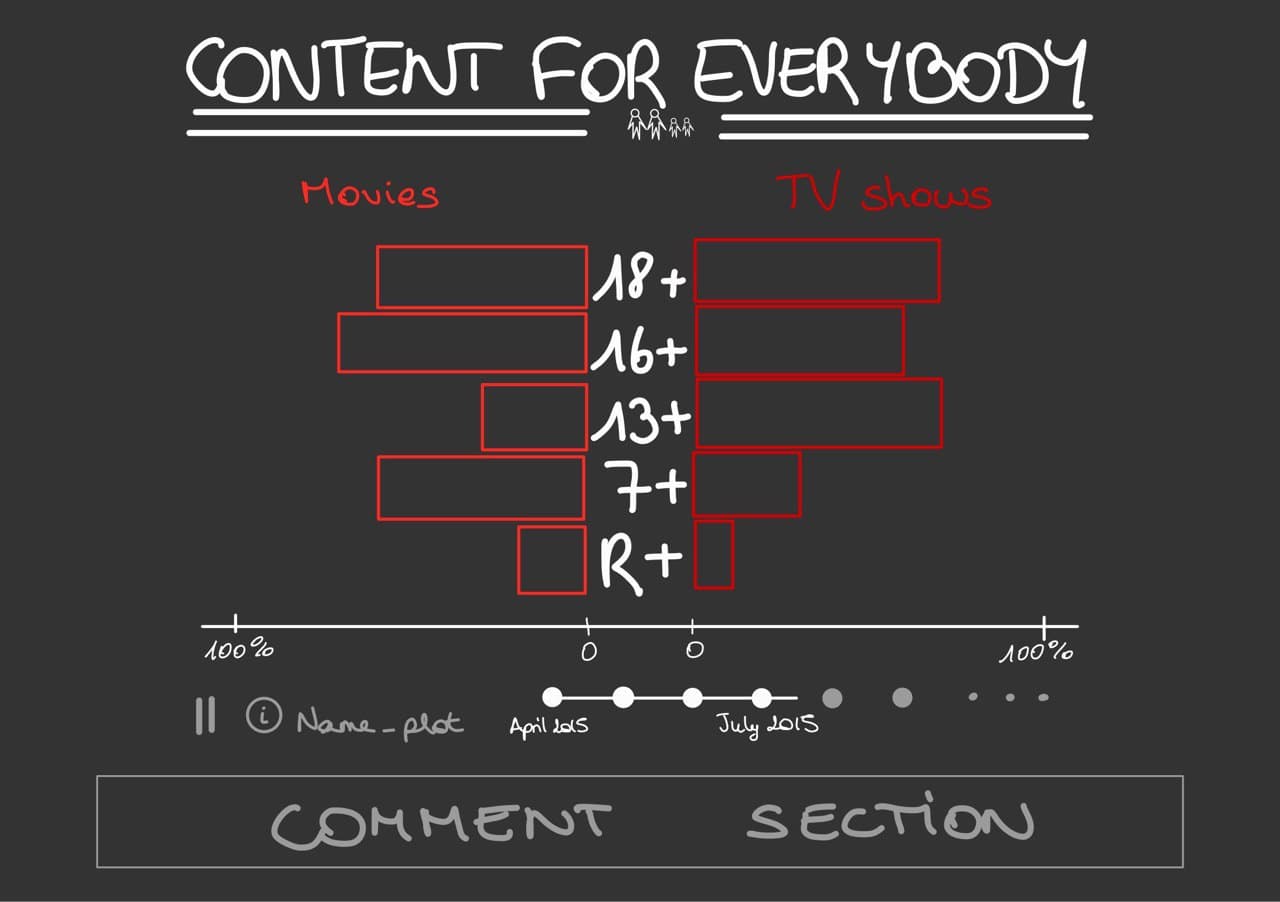 CONTENT FOR EVERYBODY
Movies TV shows
18+
16+
13+
7+
R+
100% 0 0 100%
i Name_plot April 2015 July 2015
COMMENT SECTION